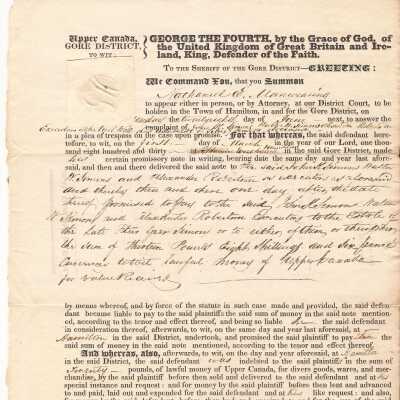 Upper Canada,
GORE DISTRICT,
TO WIT:
GEORGE THE FOURTH, by the Grace of God, of
the United Kingdom of Great Britain and Ire-
land, King, Defender of the Faith.
To the Sheriff of the Gore District—GREETING:
We Command You, that you Summon
Nathaniel C. Manwaring
to appear either in person, or by Attorney, at our District Court, to be
holden in the Town of Hamilton, in and for the Gore District, on
day of June next, to answer the
complaint of
in a plea of trespass on the case upon For that whereas, the said defendant here-
before, to wit, on the first day of in the year of our Lord, one thou-
sand eight hundred and thirty in the said Gore District, made
his certain promissory note in writing, bearing date the same day and year afore-
said, and then there delivered the said note to the said John Simons Walter
W Simons and Alexander Robertson
and thereby then and there one day after the date
thereof promised to pay to the said John Simons Walter
W Simons and Alexander Robertson Executors to the Estate of
the late Titus Geer Simon or to either of them or their order
the sum of Thirteen Pounds Eight Shillings and Six pence
Currency lawful money of Upper Canada
for value Received
by means whereof, and by force of the statute in such case made and provided, the said defen-
dant became liable to pay to the said plaintiff the said sum of money in the said note mention-
ed, according to the tenor and effect thereof, and being so liable he the said defendant
in consideration thereof, afterwards, to wit, on the same day and year last aforesaid, at
Hamilton in the said District, undertook, and promised the said plaintiff to pay
the said sum of money in the said note mentioned, according to the tenor and effect thereof.
And whereas, also, afterwards, to wit, on the day and year aforesaid, at Hamilton
in the said District, the said defendant was indebted to the said plaintiff in the sum of
Twenty pounds, of lawful money of Upper Canada, for divers goods, wares, and mer-
chandize, by the said plaintiff before then sold and delivered to the said defendant and at his
special instance and request: and for money by the said plaintiff before then lent and advanced
to and paid, laid out and expended for the said defendant, and at his like request: and also,